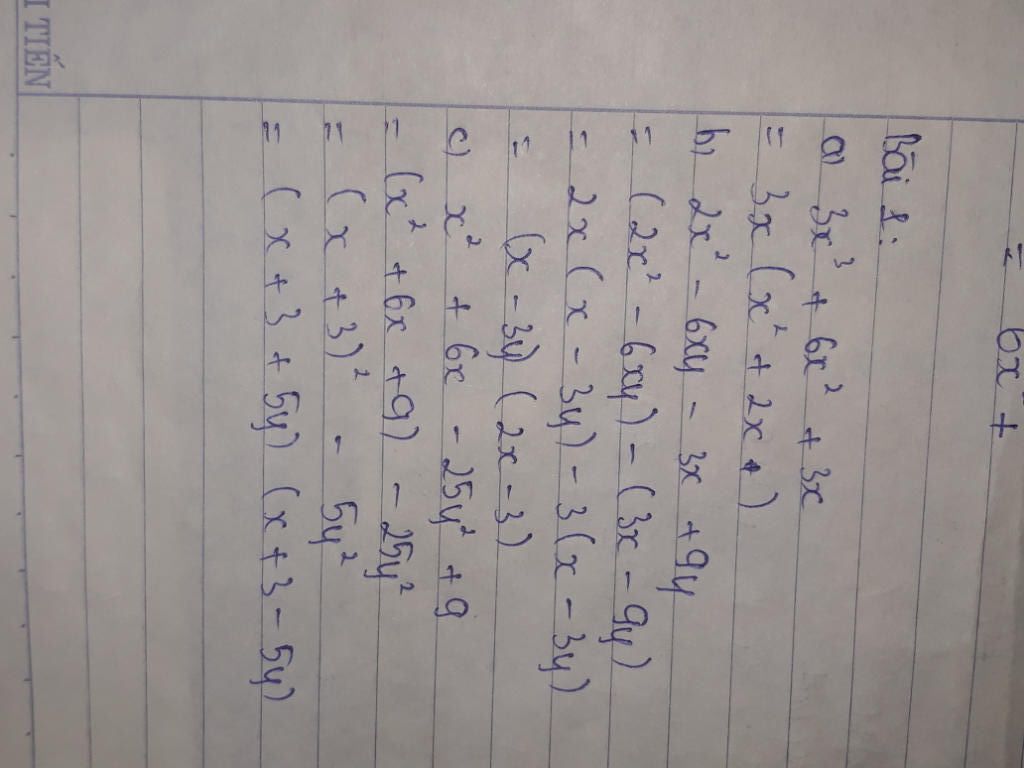 = 6x² +
Bài 1:
a) 3x³ + 6x² + 3x
= 3x (x² + 2x + )
b) 2x² - 6xy - 3x + 9y
= (2x² - 6xy) - (3x - 9y)
= 2x (x - 3y) - 3 (x - 3y)
= (x - 3y) (2x - 3)
c) x² + 6x - 25y² + 9
= (x² + 6x + 9) - 25y²
= (x + 3)² - 5y²
= (x + 3 + 5y) (x + 3 - 5y)
TIẾN